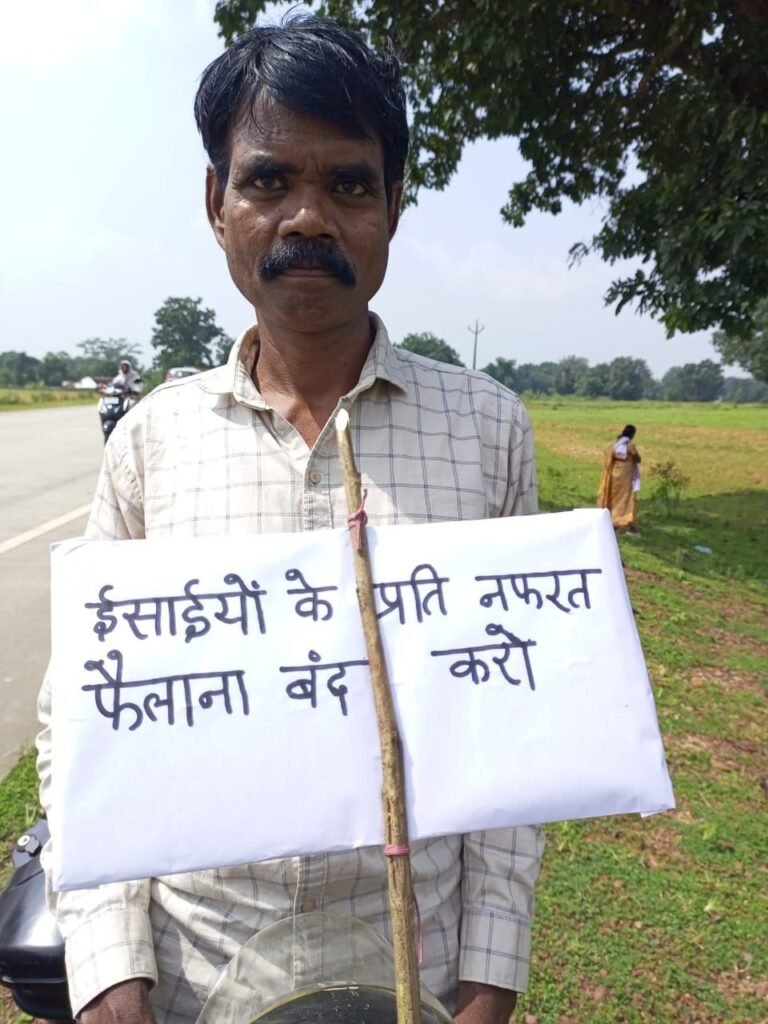 ईसाईयों के प्रति नफरत
फैलाना बंद करो